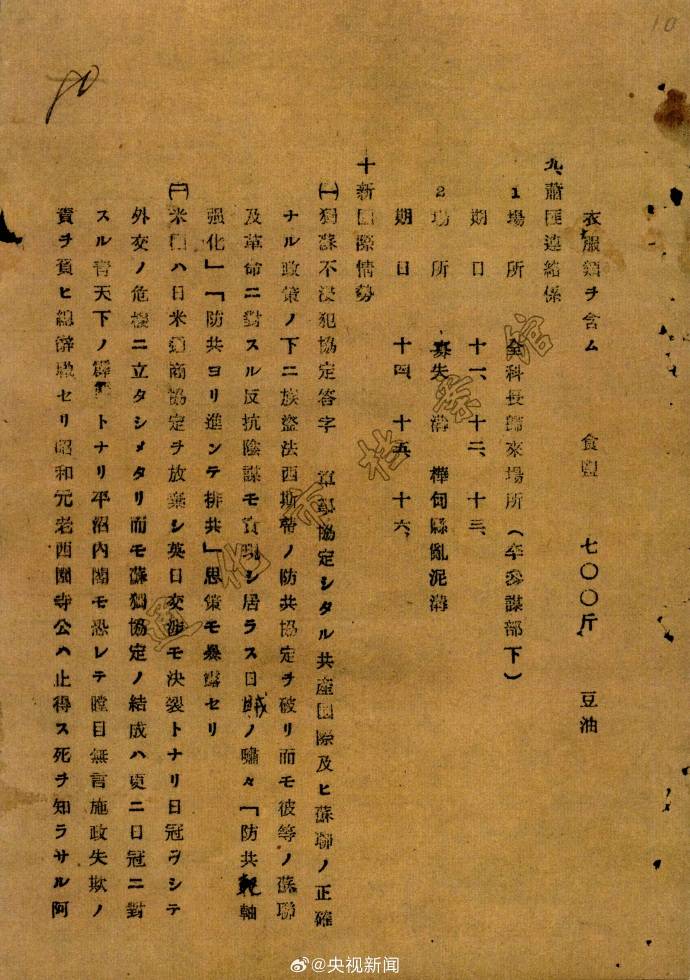 10
80
衣服類ヲ含ム 食鹽 七〇〇斤 豆油
九、蕭匪連絡係
1 場所 金科長歸來場所(李參謀部下)
期日 十一、十二、十三、
2 場所 夾溝 樺甸縣亂泥溝
期日 十四、十五、十六、
十 新國際情勢
㈠ 獨蘇不浸犯協定答字 協定シタル共產國際及ヒ蘇聯ノ正確
ナル政策ノ下ニ族盜法西斯帶ノ防共協定ヲ破リ而モ彼等ノ蘇聯
及革命ニ對スル反抗陰謀モ實現シ居ラス日賊ノ嘯々「防共軸
强化」「防共ヨリ進ンテ排共」思策モ暴露セリ
㈡ 米國ハ日米通商協定ヲ放棄シ英日交涉モ決裂トナリ日冠ヲシテ
外交ノ危機ニ立タシメタリ而モ蘇獨協定ノ結成ハ更ニ日冠ニ對
スル青天下ノ霹靂トナリ平沼内閣モ恐レテ瞠目無言施政失欺ノ
責ヲ負ヒ總辭職セリ昭和元老西園寺公ハ止得ス死ヲ知ラサル阿
通化市档案館
@央视新闻